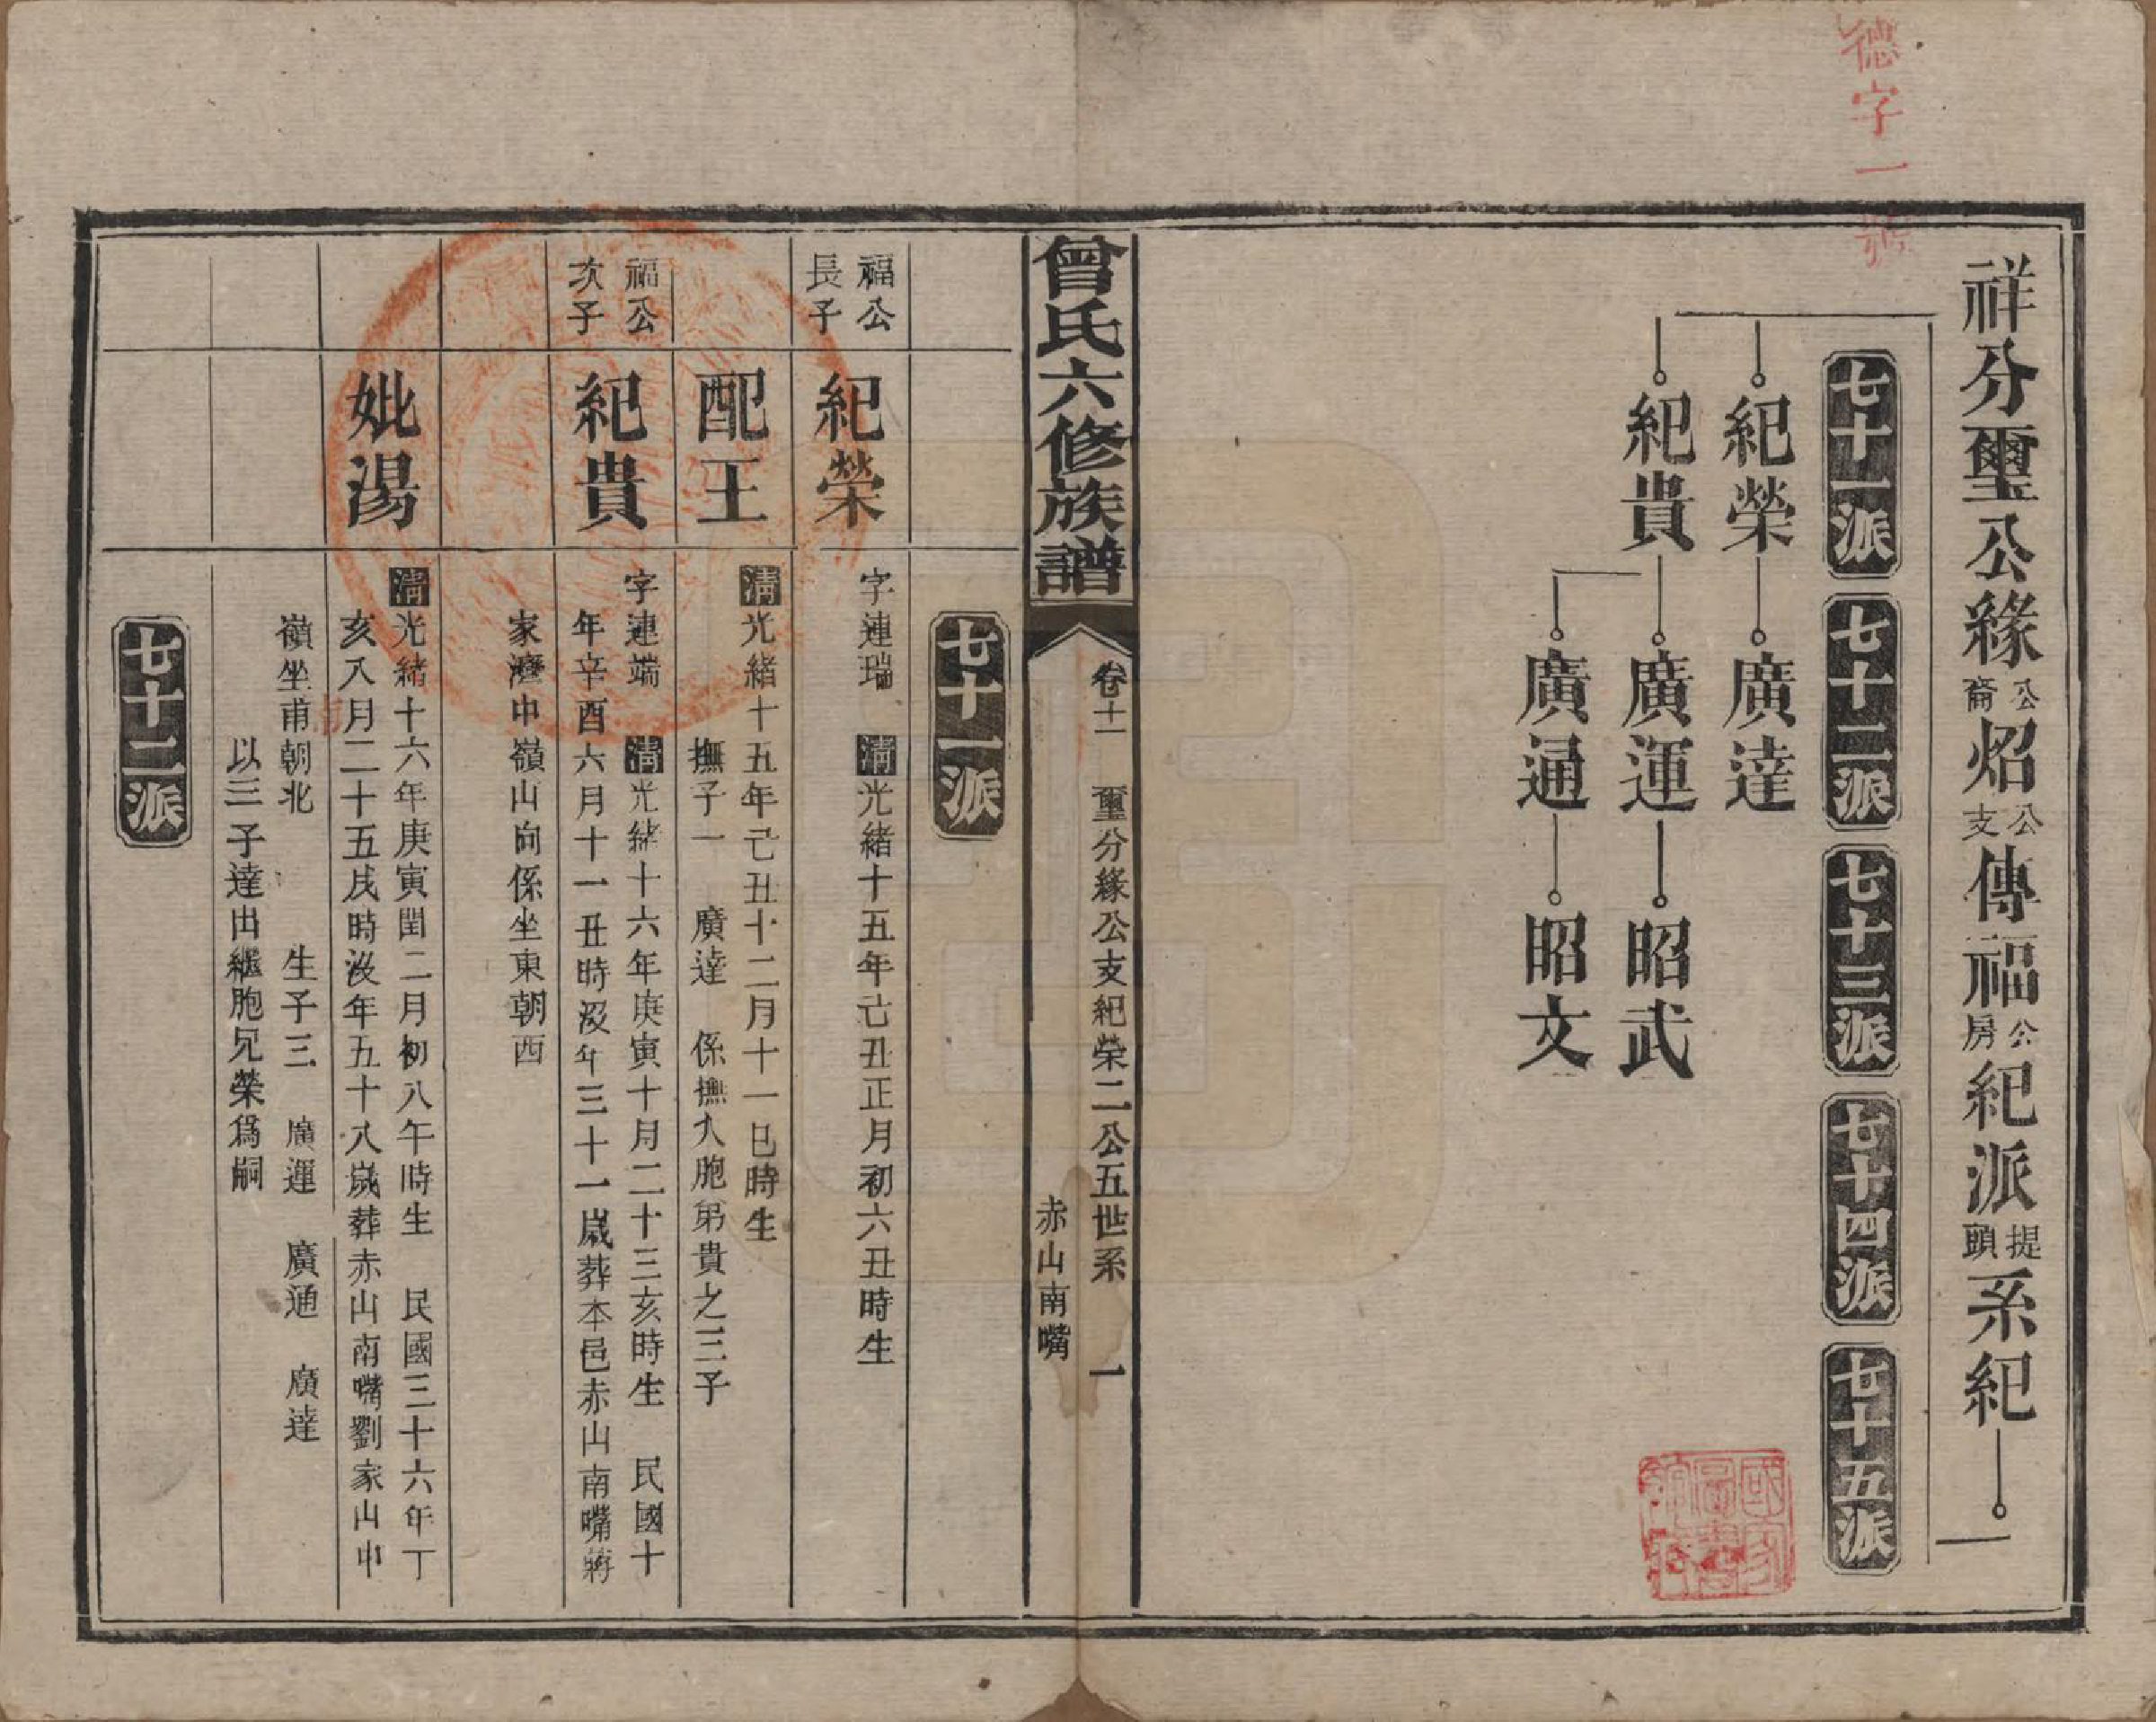 德字一號
祥分璽公緣公裔炤公支傳福公房紀派提頭系紀
七十一派
七十二派
七十三派
七十四派
七十五派
紀榮
廣達
紀貴
廣運
昭武
廣通
昭文
曾氏六修族譜
卷十一
璽分緣公支紀榮二公五世系
一
赤山南嘴
七十一派
福公長子
紀榮
字連瑞 清光緒十五年己丑正月初六丑時生
配王
清光緒十五年己丑十二月十一巳時生
撫子一 廣達 係撫人胞弟貴之三子
福公次子
紀貴
字連端 清光緒十六年庚寅十月二十三亥時生 民國十
年辛酉六月十一丑時沒年三十一歲葬本邑赤山南嘴蔣
家灣中嶺山向係坐東朝西
妣湯
清光緒十六年庚寅閏二月初八午時生 民國三十六年丁
亥八月二十五戌時沒年五十八歲葬赤山南嘴劉家山中
嶺坐甫朝北 生子三 廣運 廣通 廣達
以三子達出繼胞兄榮爲嗣
七十二派